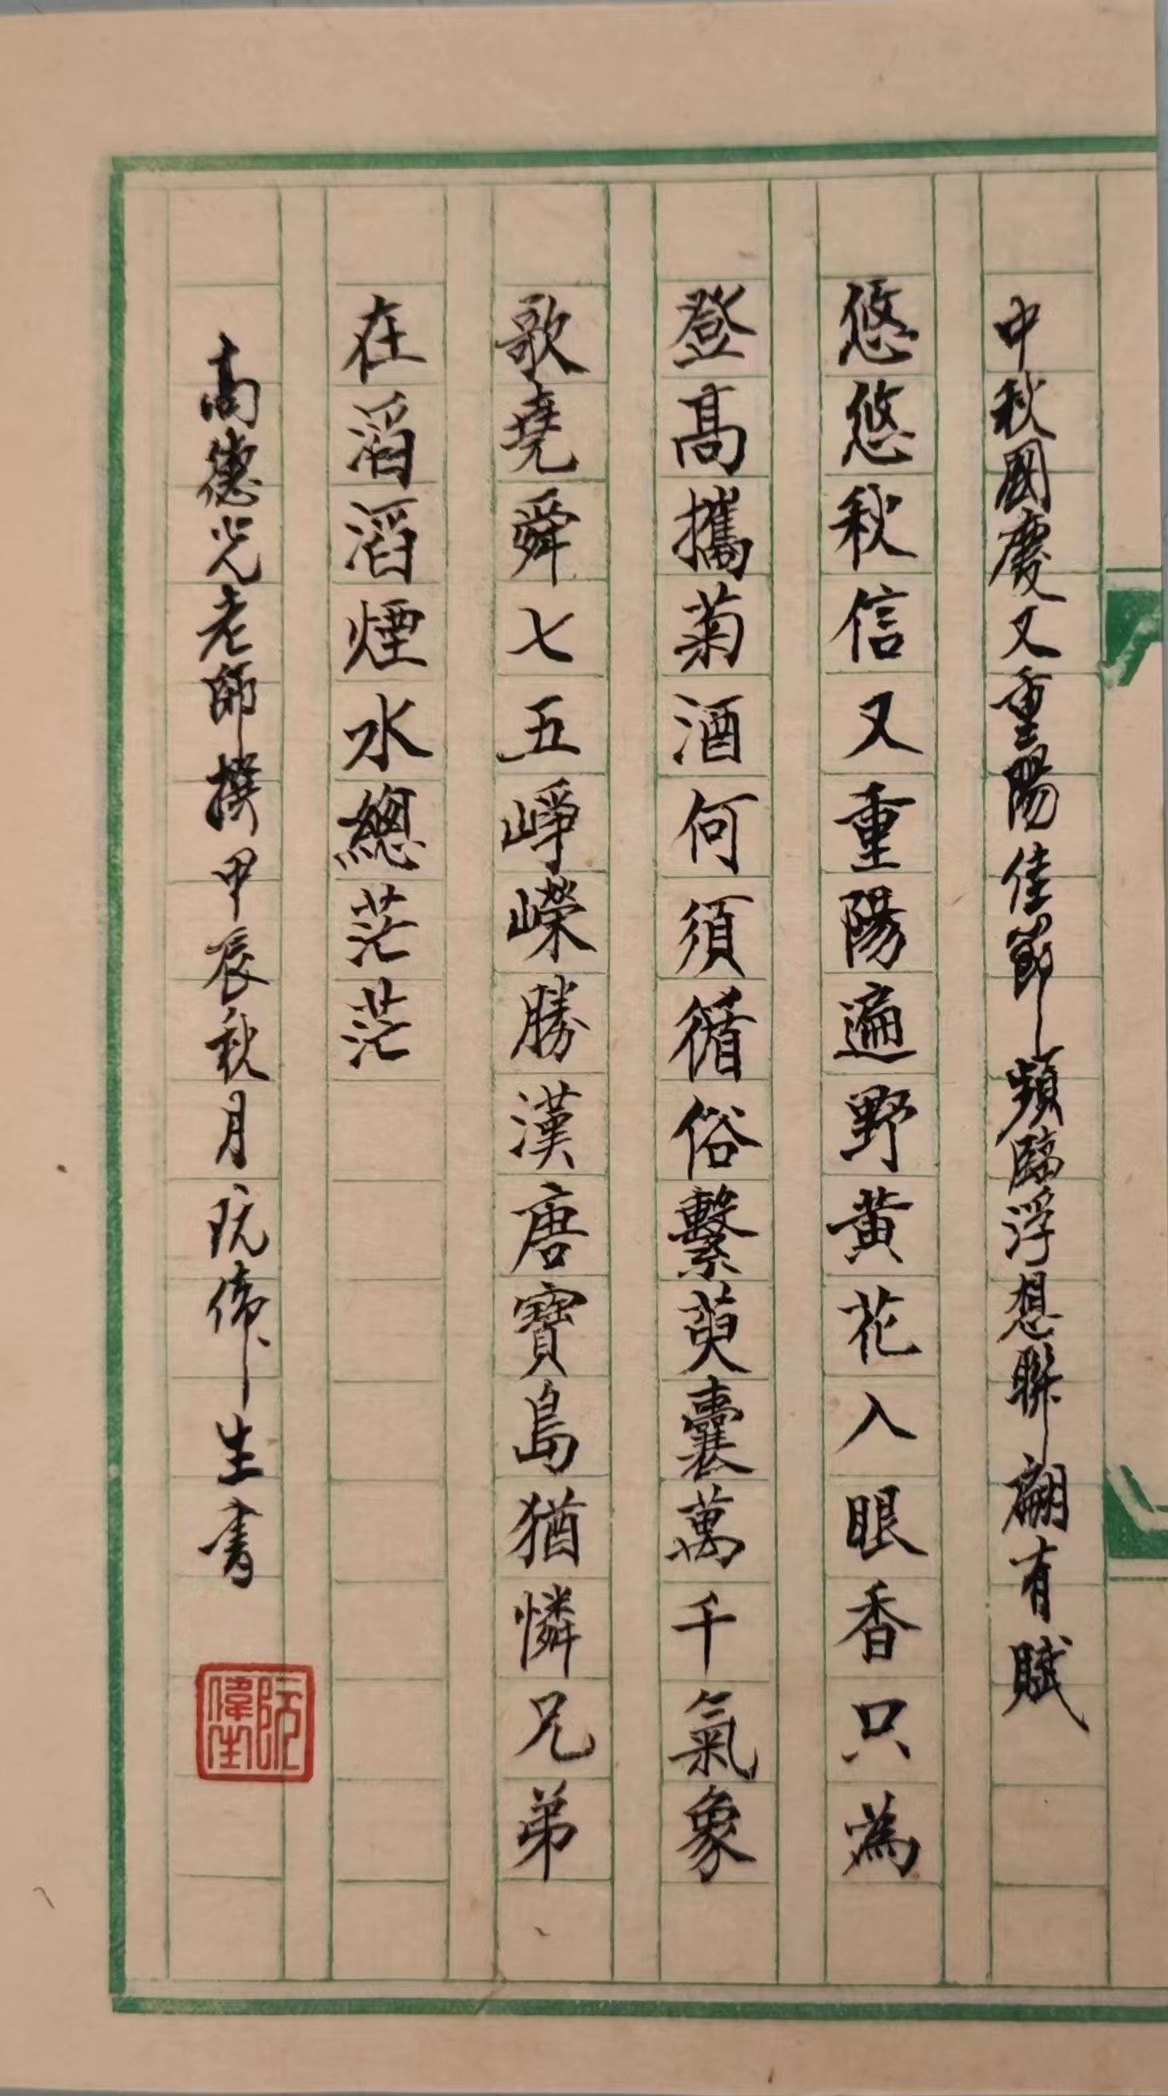 中秋國慶又重陽佳節頻臨浮想聯翩有賦
悠悠秋信又重陽遍野黃花入眼香只為
登高攜菊酒何須循俗繫萸囊萬千氣象
歌堯舜七五崢嶸勝漢唐寶島猶憐兄弟
在滔滔煙水總茫茫
高德光老師撰甲辰秋月阮偉生書
阮偉生